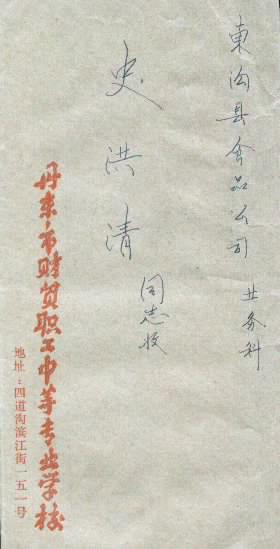 東沟县食品公司 业务科
史洪清 同志收
丹東市财贸职工中等专业学校
地址：四道沟滨江街一五一号